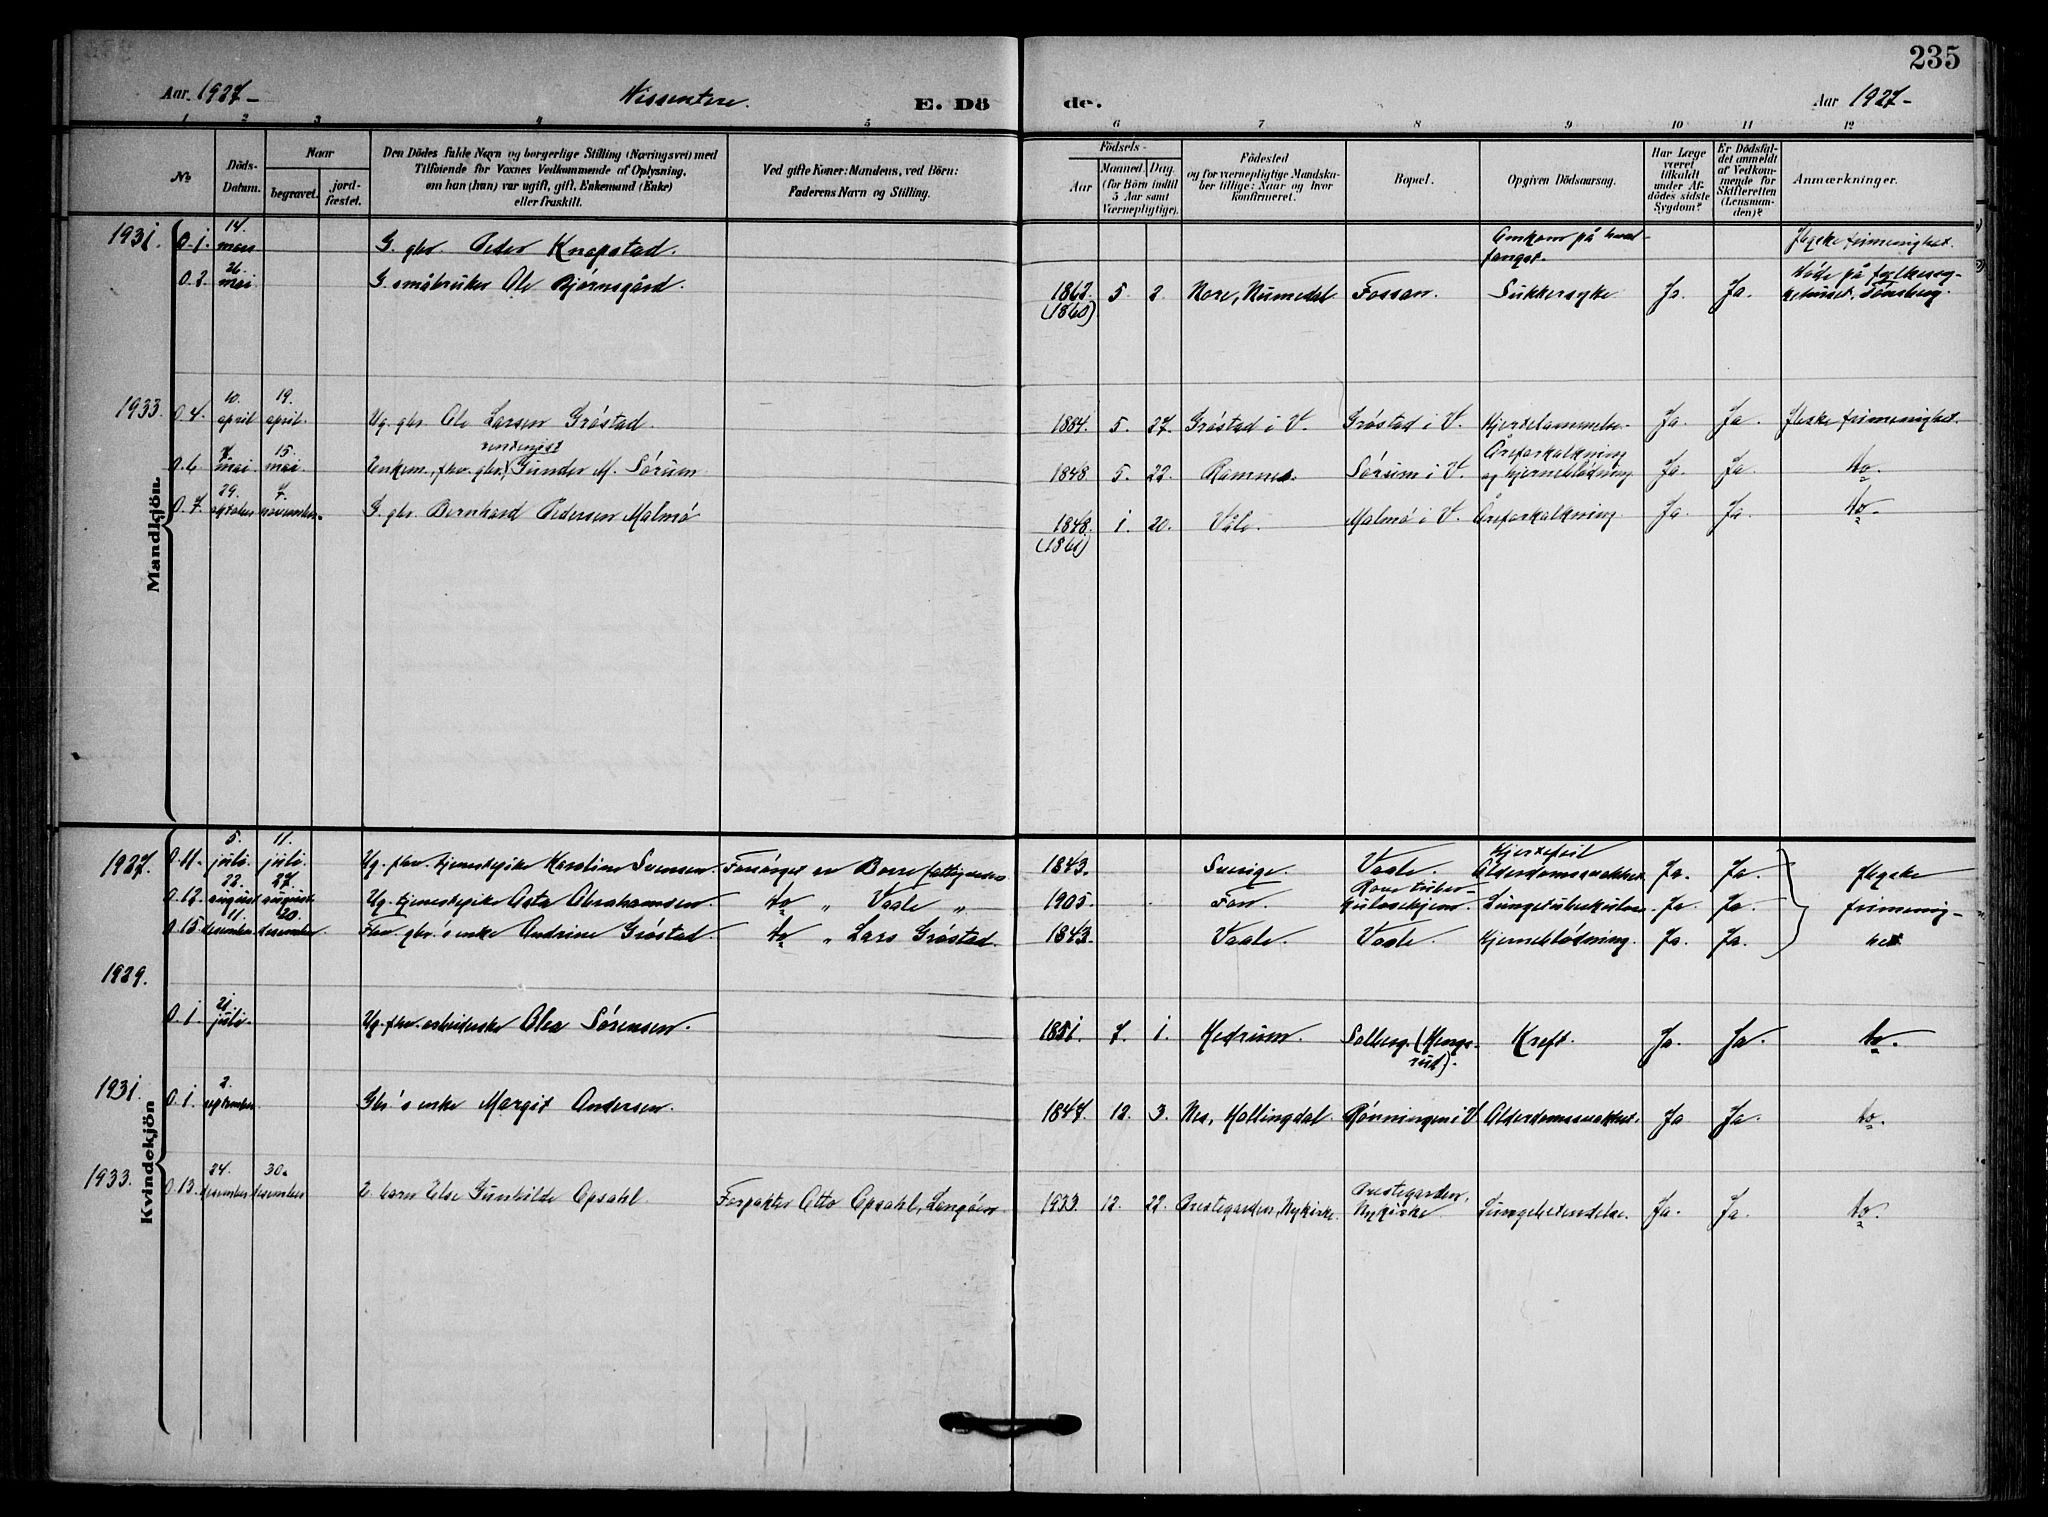 235
Aar. 1927- Dissentere. E. Dö de. Aar 1927-
1 2 3 4 5 6 7 8 9 10 11 12
No
Döds-Datum.
Naar
begravet. jord-fæstet.
Den Dödes fulde Navn og borgerlige Stilling (Næringsvei) med
Tilföiende for Voxnes Vedkommende af Oplysning,
om han (hun) var ugift, gift, Enkemand (Enke)
eller fraskilt.
Ved gifte Koner: Mandens, ved Börn:
Faderens Navn og Stilling.
Födsels-
Aar
Maaned. Dag.
(for Börn indtil
5 Aar samt
Værnepligtige).
Födested
og for værnepligtige Mandska-
ber tillige: Naar og hvor
konfirmeret.
Bopæl.
Opgiven Dödsaarsag.
Har Læge
været
tilkaldt
under Af-
dödes sidste
Sygdom?
Er Dödsfal-
det anmeldt
af Vedkom-
mende for
Skifteretten
(Lensman-
den)?
Anmærkninger.
Mandkjön.
1931. D. 1. 14. mars G. gbr. Peder Knapstad. Omkom på hval-fangst. frimenighet.
D. 2. 26. mai G. småbruker Ole Bjørnsgård. 1862 (1860) 5 2 Nore, Numedal Fossan. Sukkersyke Ja Ja Døde på fylkessy-kehuset, Tønsberg.
1933. D. 4. 10. april 19. april. Ug. gbr. Ole Larsen Gröstad. 1884. 5. 27. Gröstad i V. Gröstad i V. Hjertelammelse. Ja Ja. frimenighet.
D. 6. 7. mai 15. mai Enkem., fhv. gbr., rentenist Gunder M. Sörum 1848 5. 22. Ramnes. Sörum i V. Åreforkalkning og hjerneblödning Ja. Ja. do.
D. 7. 29. oktober 7. november. G. gbr. Bernhard Pedersen Malmö 1848. (1861) 1. 20. Våle. Malmö i V. Åreforkalkning. Ja. Ja. do.
Kvindekjön
1927. D. 11. 5. juli. 11. juli. Ug. fhv. tjenestepike Karoline Svensen. Forsörget av Borre fattigvesen 1843. Sverige. Vaale. Hjertefeil Alderdomssvakhet. Ja. Ja.
D. 12. 22. august 27. august. Ug. tjenestepike Asta Abrahamsen do " Vaale " 1905. Fon. Rove tuber-kulosehjem. Lungetuberkulose. Ja. Ja.
D. 15 11. desember 20. desember. Fhv. gbr.'s enke Andrine Gröstad. do " Lars Gröstad. 1843. Vaale. Vaale. Hjerneblödning. Ja. Ja. frimenig-het
1929. D. 1. 21. juli. Ug. fhv. arbeiderske Olea Sörensen. 1851. 7. 1. Hedrum. Solberg. Kreft. Ja. Ja. do.
1931. D. 1. 2. september Gbr's enke Margit Andersen. 1847 12. 3. Nes, Hallingdal. Rönningen i V Alderdomssvakhet. Ja Ja. do.
1933. D. 13. 24. desember 30. desember E. barn Else Gunhilde Opsahl Forpakter Otto Opsahl, Langöen 1933. 12. 22. Prestegarden, Nykirke. Prestegarden, Nykirke Lungebetendelse. Ja. Ja. do.